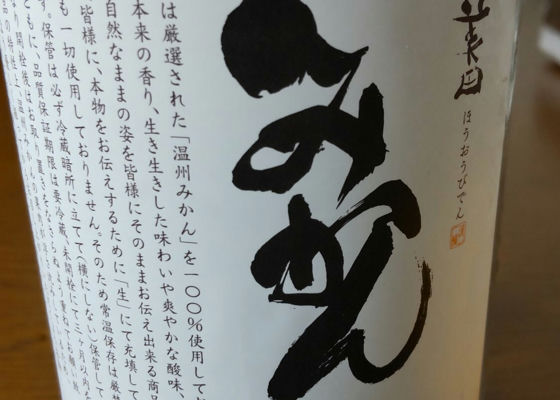 美田
ほうおうびでん
みかん
は厳選された「温州みかん」を一〇〇%使用してお
本来の香り、生き生きした味わいや爽やかな酸味、
自然なままの姿を皆様にそのままお伝え出来る商品
皆様に、本物をお伝えするために「生」にて充填して
も一切使用しておりません。そのため常温保存は厳禁
す。保管は必ず冷蔵暗所に立てて(横にしない)保管して
ともに、品質保証期限は要冷蔵、未開栓にて三ヶ月以内を
開栓後はお取り置きをなさらぬ